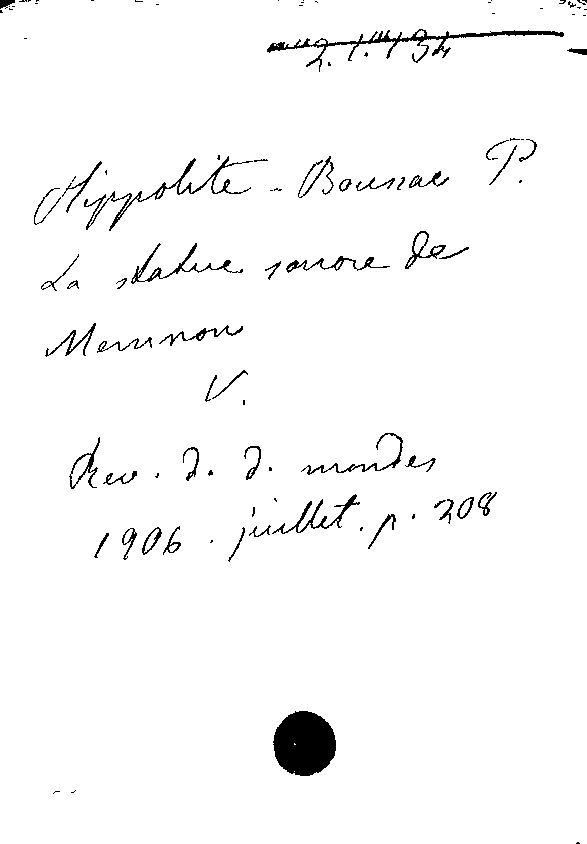 2.1.134
Hippolite-Boussac P.
La statue sonore de
Memnon
V.
Rev. d. d. mondes
1906. juillet. p. 208